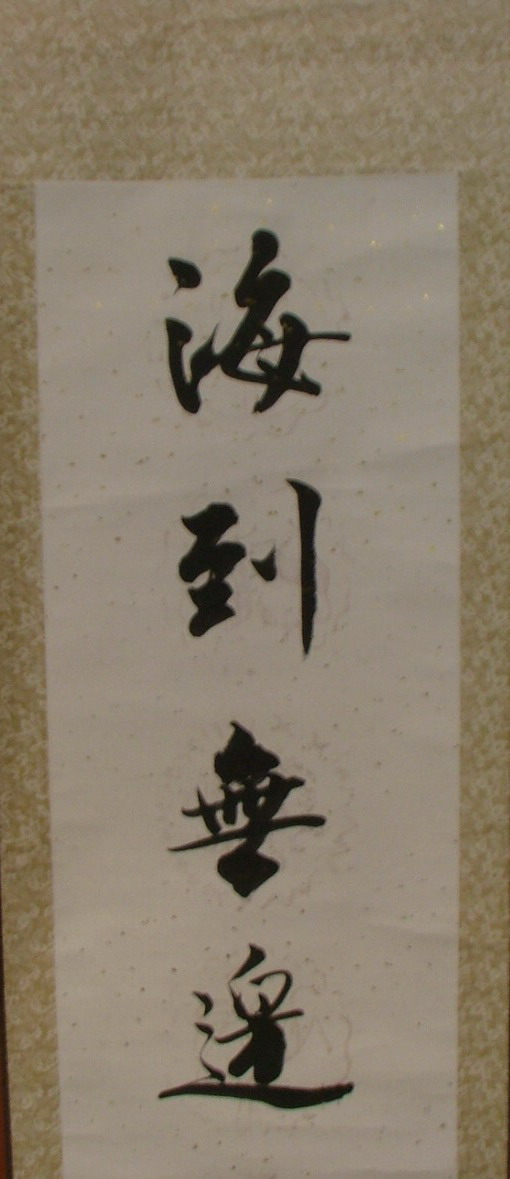 海到無邊